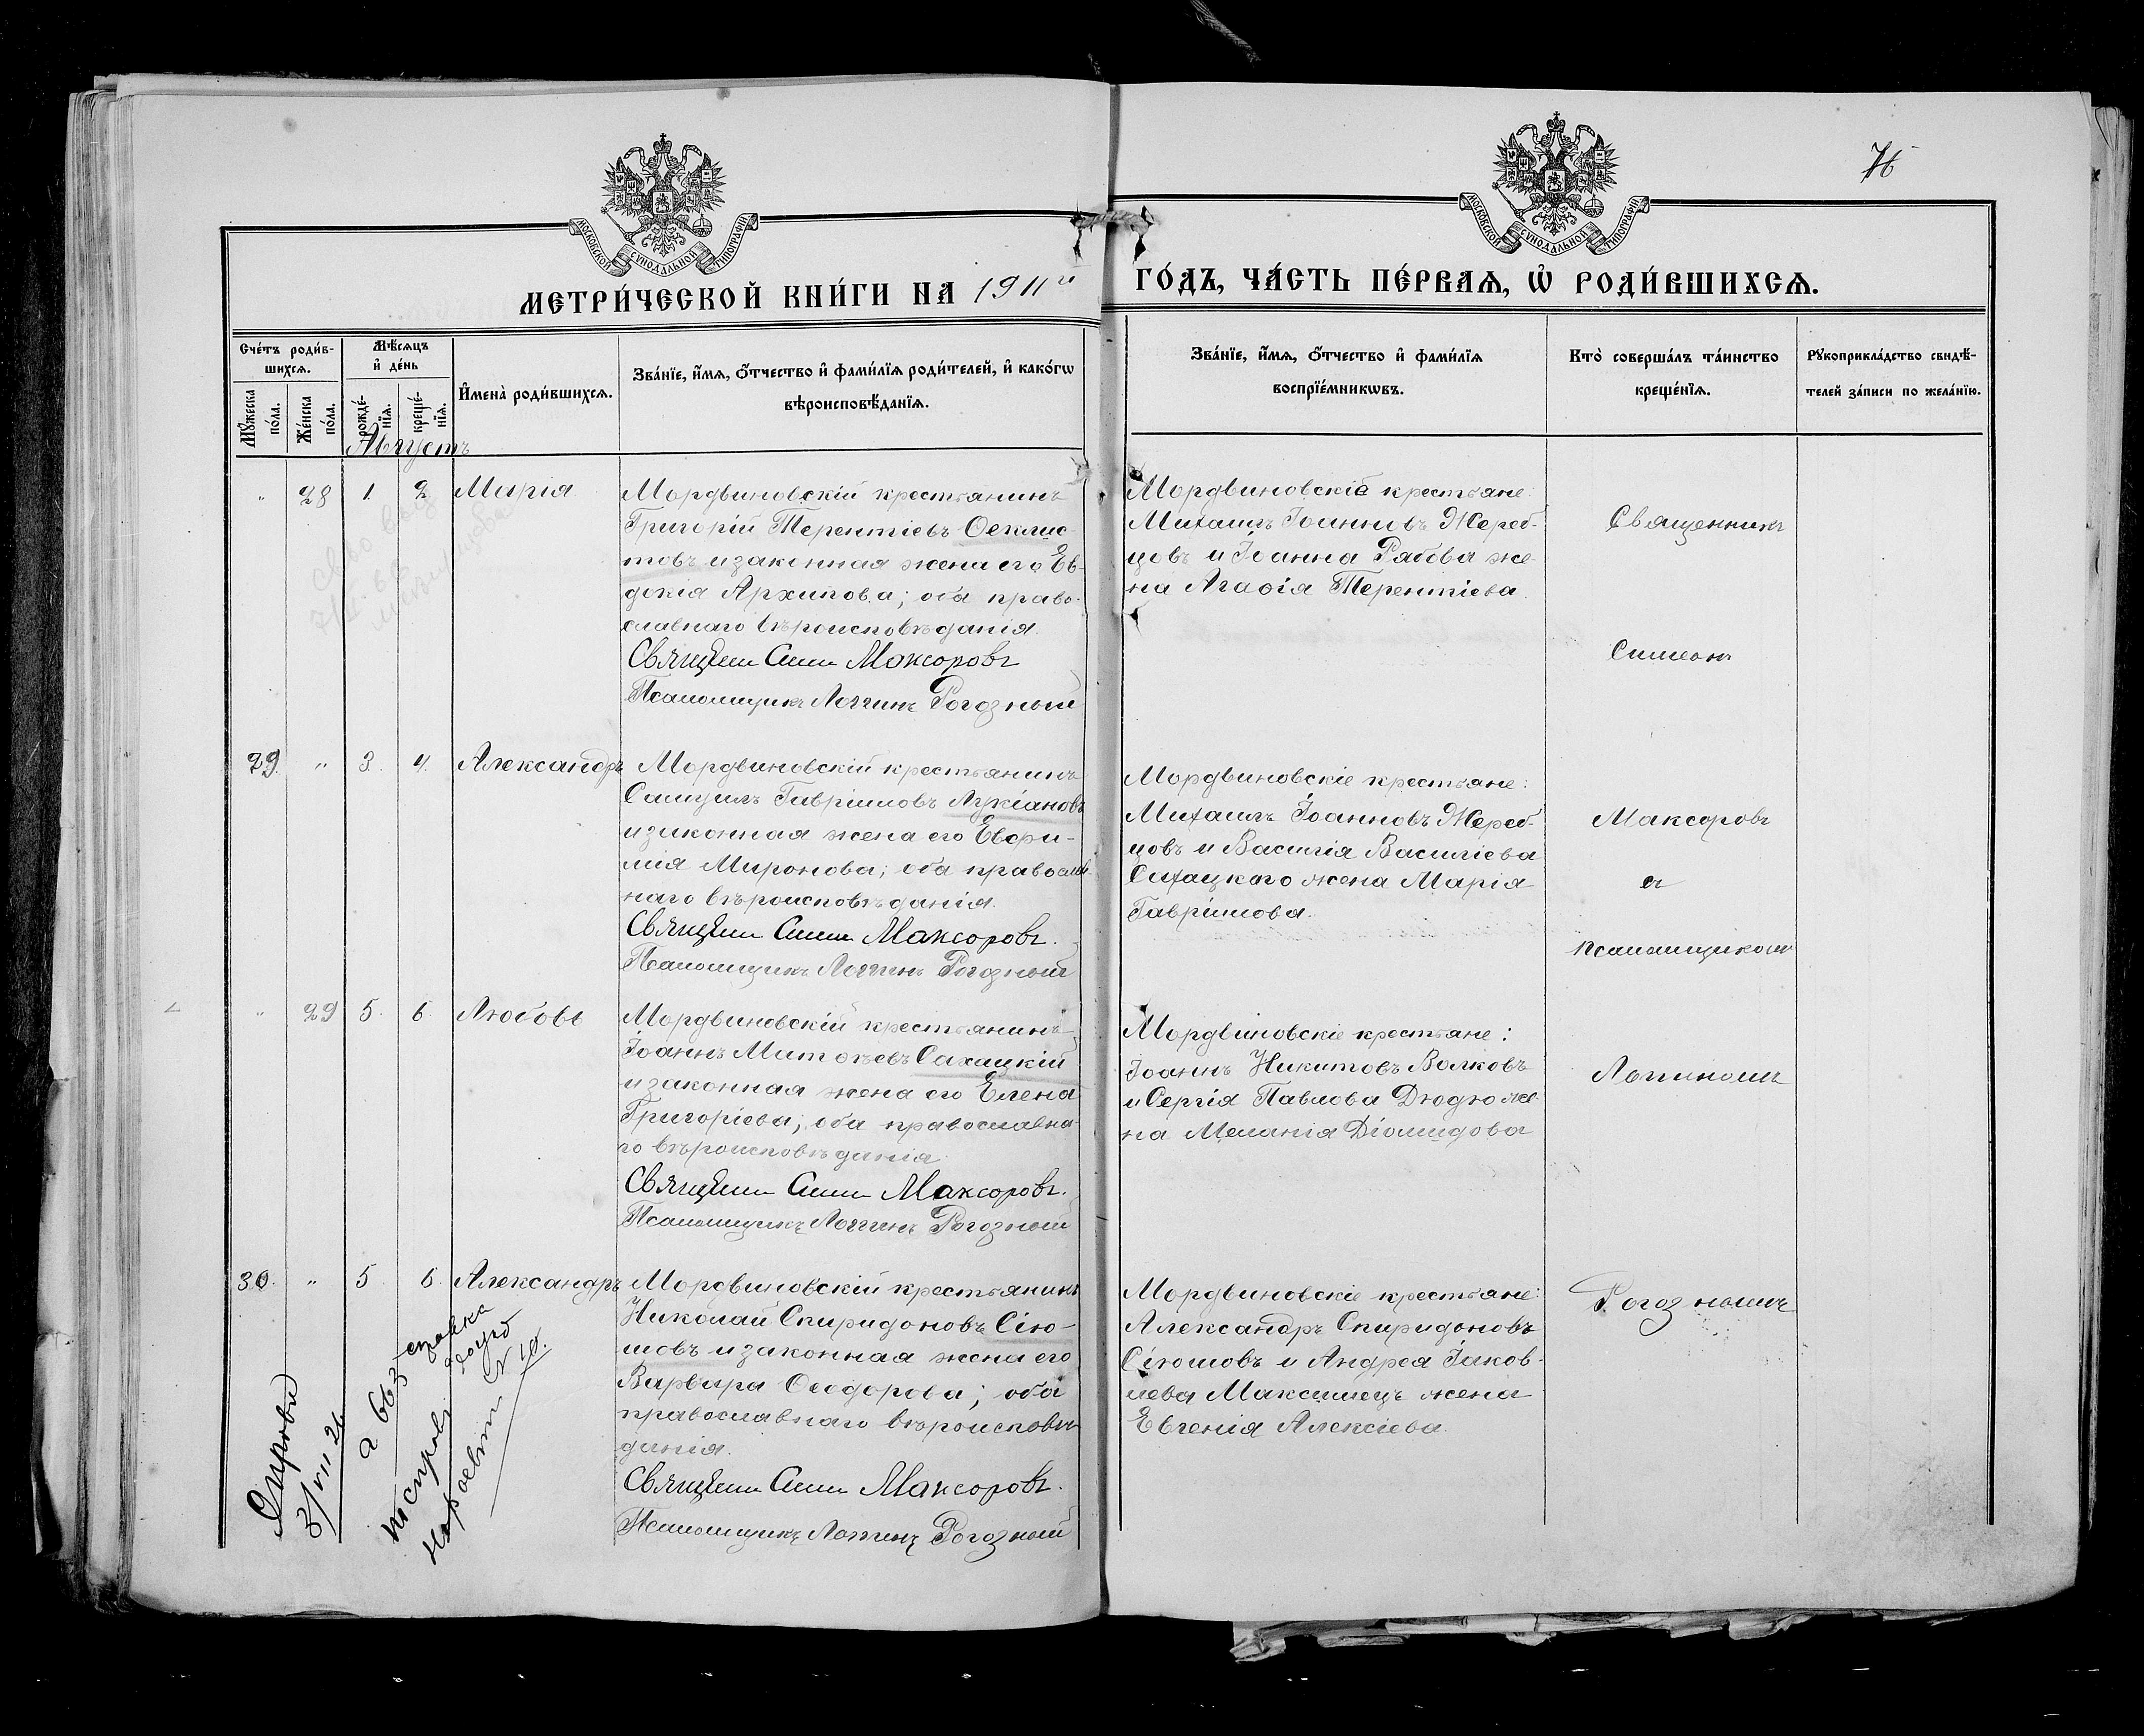 76
МОСКОВСКОЙ СУНОДАЛЬНОЙ ТИПОГРАФІИ
МОСКОВСКОЙ СУНОДАЛЬНОЙ ТИПОГРАФІИ
МЕТРИ́ЧЕСКОЙ КНИ́ГИ НА 1911й ГО́ДЪ, ЧА́СТЬ ПЕ́РВАѦ, Ѡ҆ РОДИ́ВШИХСѦ.
Сче́тъ роди́в-
шихсѧ.
Мꙋ́жеска по́ла.
Же́нска по́ла.
Мѣ́сѧцъ
и҆ де́нь
рожде́-
нїѧ.
креще́-
нїѧ.
И҆мена̀ роди́вшихсѧ.
Зва́нїе, и҆́мѧ, ѻ҆́тчество и҆ фами́лїѧ роди́телей, и҆ како́гѡ
вѣроисповѣ́данїѧ.
Зва́нїе, и҆́мѧ, ѻ҆́тчество и҆ фами́лїѧ
воспрїе́мникѡвъ.
Кто̀ соверша́лъ та́инство
креще́нїѧ.
Рꙋкоприкла́дство свидѣ́-
телей за́писи по жела́нїю.
Августъ
" 28 1 2 Марія
Мордвиновскій крестьянинъ
Григорій Терентіевъ Ѳеклис-
товъ и законная жена его Ев-
докія Архипова; оба право-
славнаго вѣроисповѣданія.
Священ Сим Максоровъ
Псаломщикъ Логгинъ Рогозный
Мордвиновскіе крестьяне:
Михаилъ Іоанновъ Жереб-
цовъ и Іоанна Рябова же-
на Агаѳія Терентіева.
Священникъ
Симеонъ
29. " 3. 4. Александръ
Мордвиновскій крестьянинъ
Самуилъ Гавріиловъ Лукіановъ
и законная жена его Евѳи-
мія Миронова; оба правосла
наго вѣроисповѣданія.
Священ Сим Максоровъ.
Псаломщикъ Логгинъ Рогозный
Мордвиновскіе крестьяне:
Михаилъ Іоанновъ Жереб-
цовъ и Василія Василіева
Сахацкаго жена Марія
Гавріилова.
Максоровъ
съ
псаломщикомъ
" 29 5. 6. Любовь
Мордвиновскій крестьянинъ
Іоаннъ Митоѳевъ Сахацкій
и законная жена его Елена
Григоріева; оба православна-
го вѣроисповѣданія
Священ Сим Максоровъ.
Псаломщикъ Логгинъ Рогозный
Мордвиновскіе крестьяне:
Іоаннъ Никитовъ Волковъ
и Сергія Павлова Дюдю же-
на Меланія Діомидова
Логгиномъ
30. " 5. 6. Александръ
Мордвиновскій крестьянинъ
Николай Спиридоновъ Сію-
шовъ и законная жена его
Варвара Ѳеодорова; оба
православнаго вѣроисповѣ-
данія.
Священ Сим Максоровъ.
Псаломщикъ Логгинъ Рогозный
Мордвиновскіе крестьяне:
Александръ Спиридоновъ
Сіюшовъ и Андрея Іаков-
лева Максимецъ жена
Евгенія Алексіева.
Рогознымъ
3/VII 26